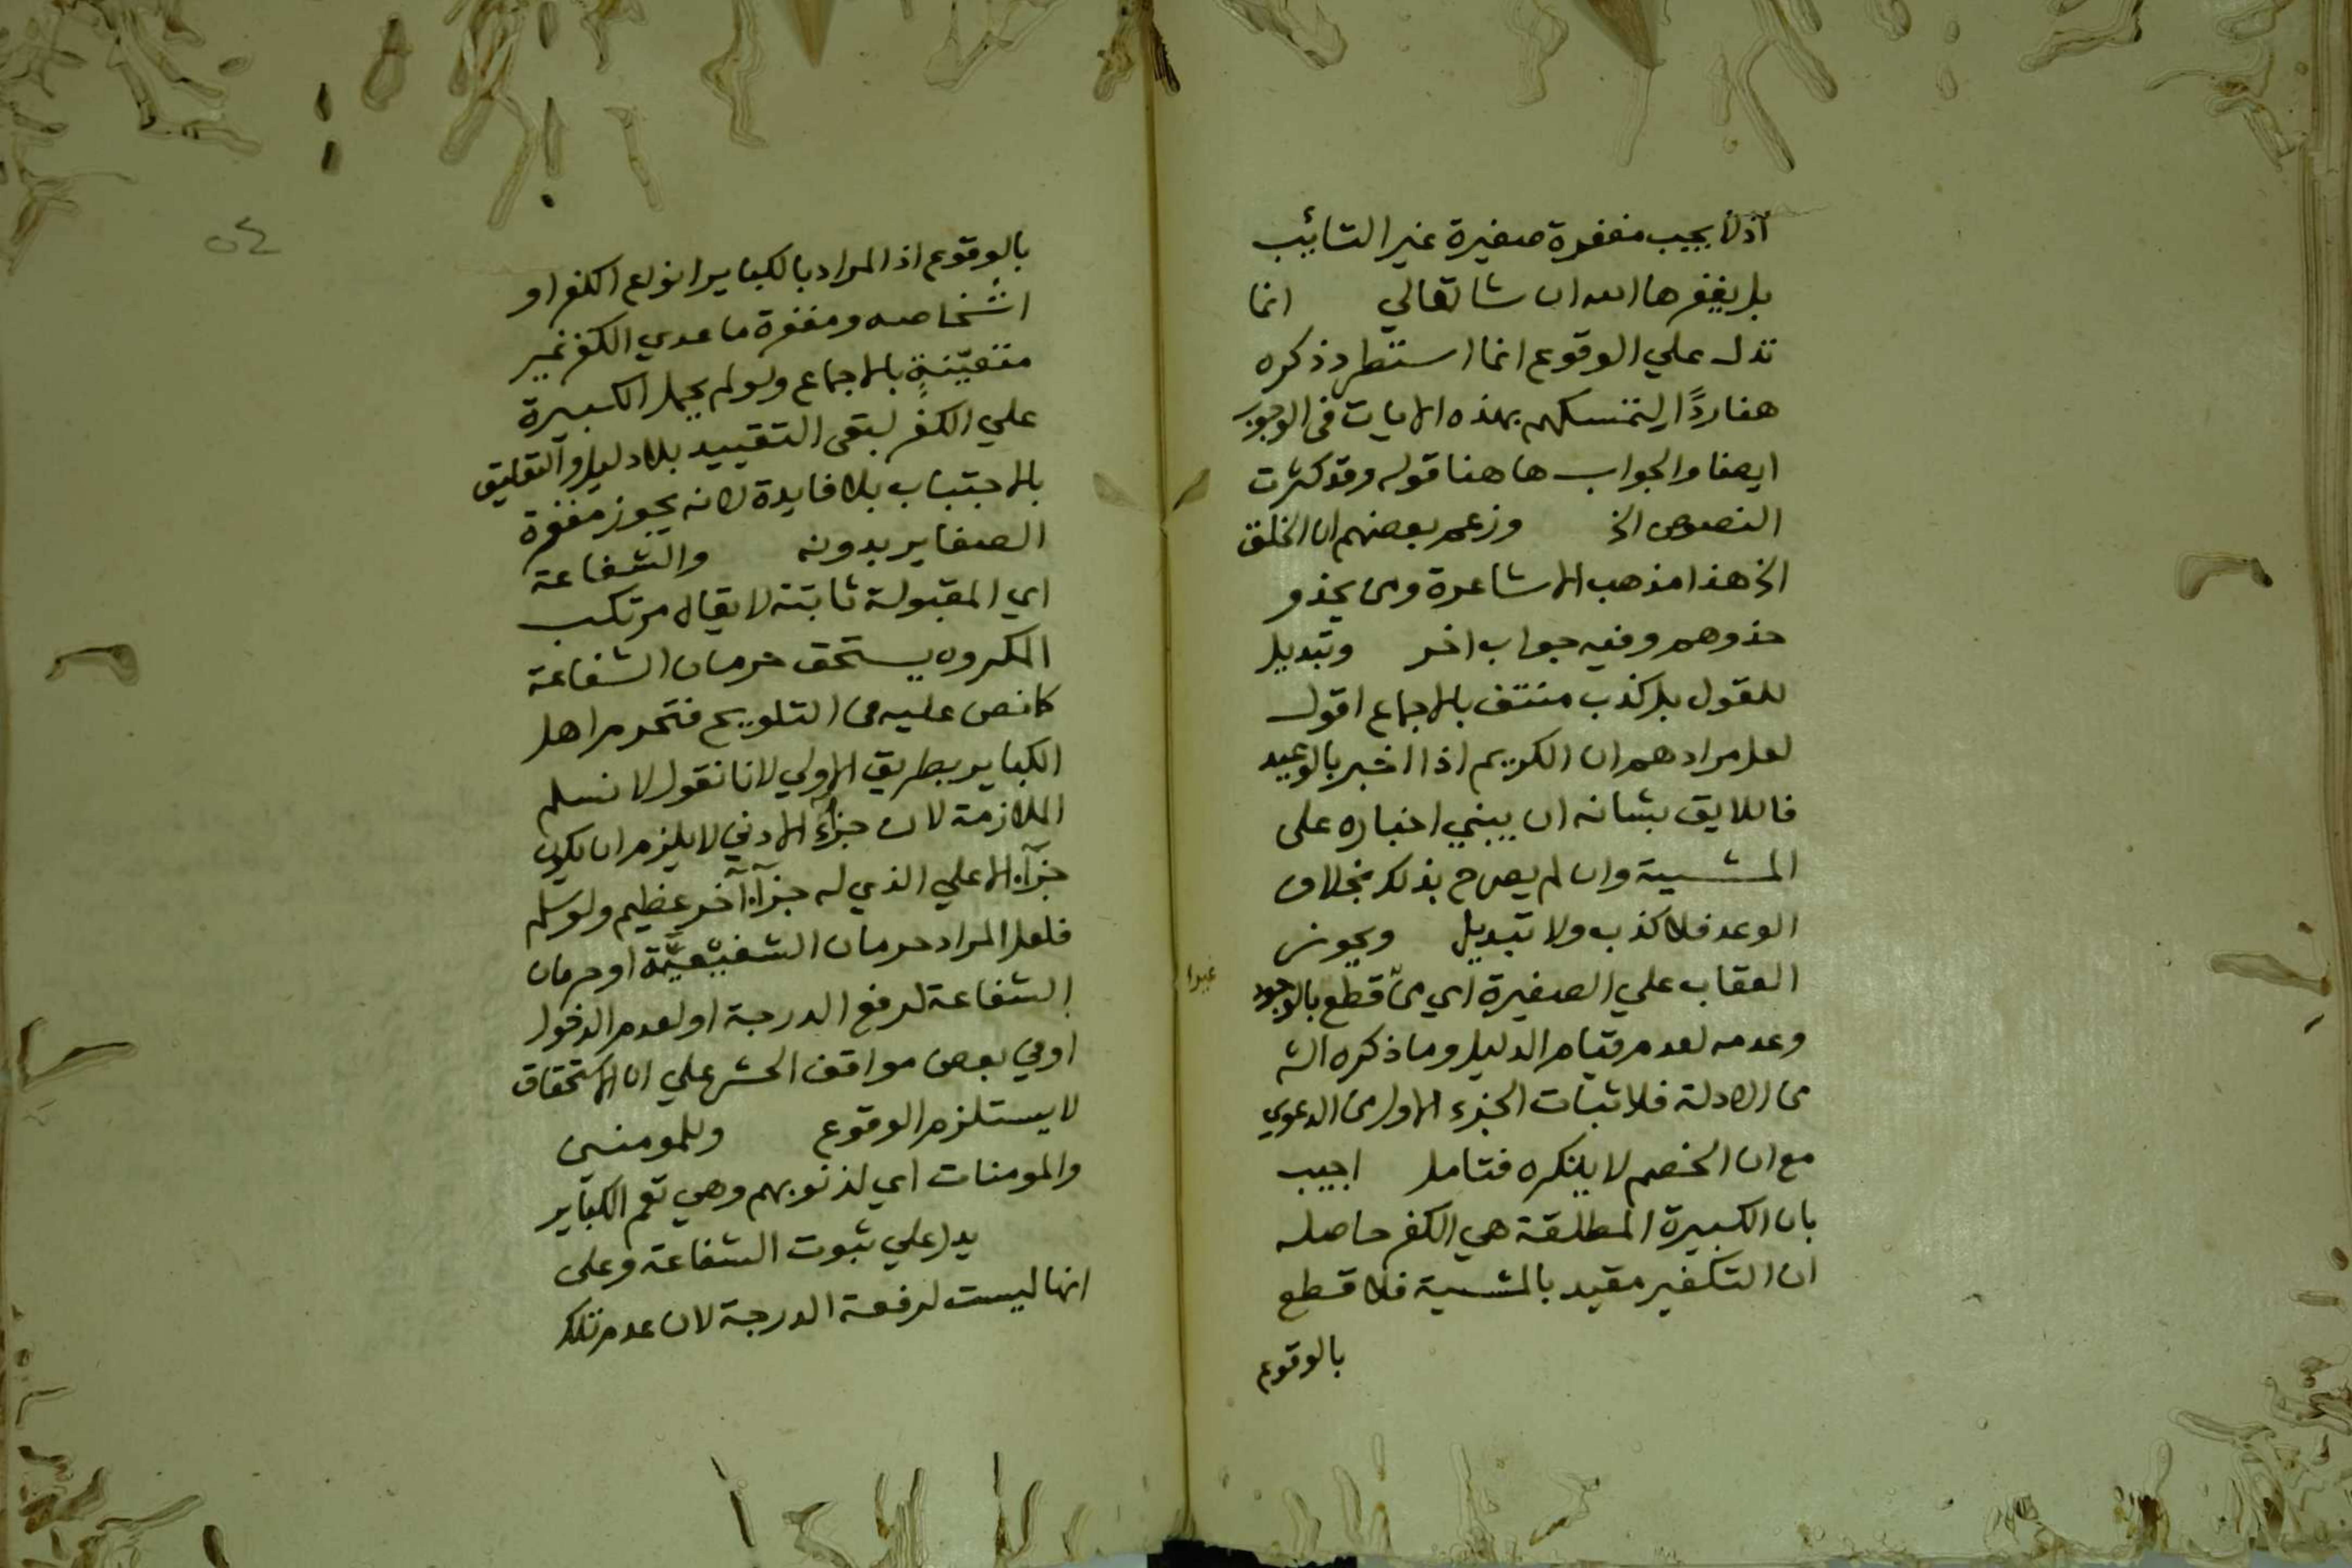 اذ لا يجب مغفرة صغيرة غير التائب
بل يغفرها الله ان شا تعالي انما
تدل علي الوقوع انما استطرد ذكره
هنا ردًا لتمسكهم بهذه الايات في الوجوب
ايضا والجواب هاهنا قوله وقد كثرت
النصوص الخ وزعم بعضهم ان الخلف
الخ هذا مذهب الاشاعرة ومن يحذو
حذوهم وفيه جواب اخر وتبديل
للقول بل كذب منتف بالاجماع اقول
لعل مرادهم ان الكريم اذا اخبر بالوعيد
فاللايق بشانه ان يبني اخباره على
المشية وان لم يصرح بذلك بخلاف
الوعد فلا كذب ولا تبديل ويجوز
العقاب علي الصغيرة اي من غير قطع بالوجود
وعدمه لعدم قيام الدليل وما ذكره الش
من الادلة فلاثبات الجزء الاول من الدعوي
مع ان الخصم لا ينكره فتامل اجيب
بان الكبيرة المطلقة هي الكفر حاصله
ان التكفير مقيد بالمشية فلا قطع
بالوقوع
٥٤
بالوقوع اذ المراد بالكباير انواع الكفر او
اشخاصه ومغفرة ما عدي الكفر غير
متعيّنةٍ بالاجماع ولو لم يحمل الكبيرة
علي الكفر لبقي التقييد بلا دليل والتعليق
بالاجتناب بلا فايدة لانه يجوز مغفرة
الصغاير بدونه والشفاعة
اي المقبولة ثابتة لا يقال مرتكب
المكروه يستحق حرمان الشفاعة
كما نص عليه في التلويح فتحرم اهل
الكباير بطريق الاولي لانا نقول لا نسلم
الملازمة لان جزآء الادني لا يلزم ان يكون
جزآء الاعلي الذي له جزآء آخر عظيم ولو سلم
فلعل المراد حرمان الشفيعيَّة او حرمان
الشفاعة لرفع الدرجة او لعدم الدخول
او في بعض مواقف الحشر علي ان الاستحقاق
لا يستلزم الوقوع وللمومنين
والمومنات اي لذنوبهم وهي تعم الكباير
يدل علي ثبوت الشفاعة وعلى
انها ليست لرفعة الدرجة لان عدم تلك